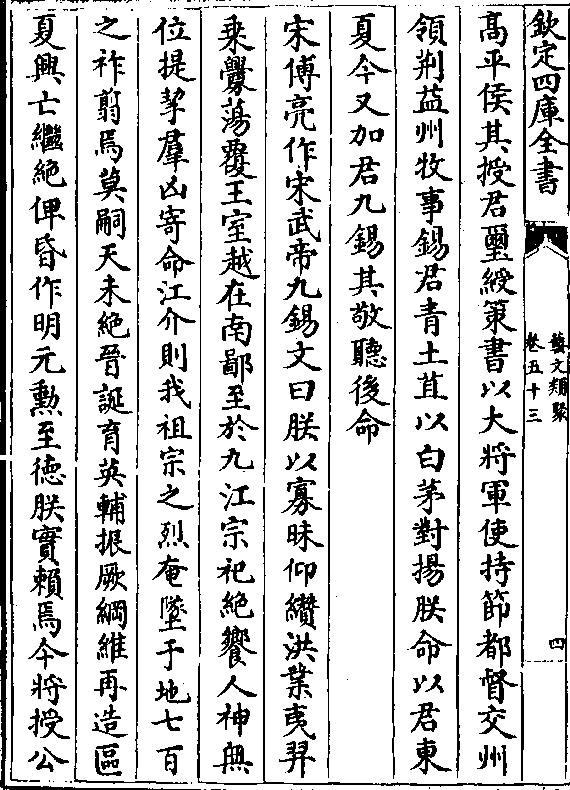 欽定四庫全書
藝文類聚
卷五十三
四
高平侯其授君璽綬策書以大將軍使持節都督交州
領荆益州牧事錫君青土苴以白茅對揚朕命以君東
夏今又加君九錫其敬聽後命
宋傅亮作宋武帝九錫文曰朕以寡昧仰纘洪業夷羿
乗釁蕩覆王室越在南鄙至於九江宗祀絶饗人神無
位提挈羣凶寄命江介則我祖宗之烈奄墜于地七百
之祚翦焉莫嗣天未絶晉誕育英輔振厥綱維再造區
夏興亡繼絶俾昏作明元勲至徳朕實賴焉今將授公